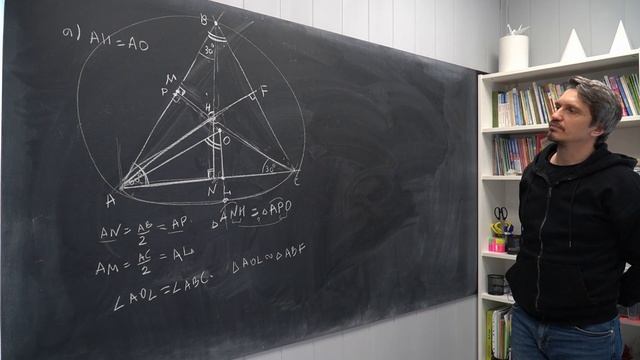 а) AH = AO
B
30°
M
P
F
H
O
60°
30°
A
N
L
C
AN = AB/2 = AP
△ANH = △APO
AM = AC/2 = AL
∠AOL = ∠ABC. △AOL ∾ △ABF